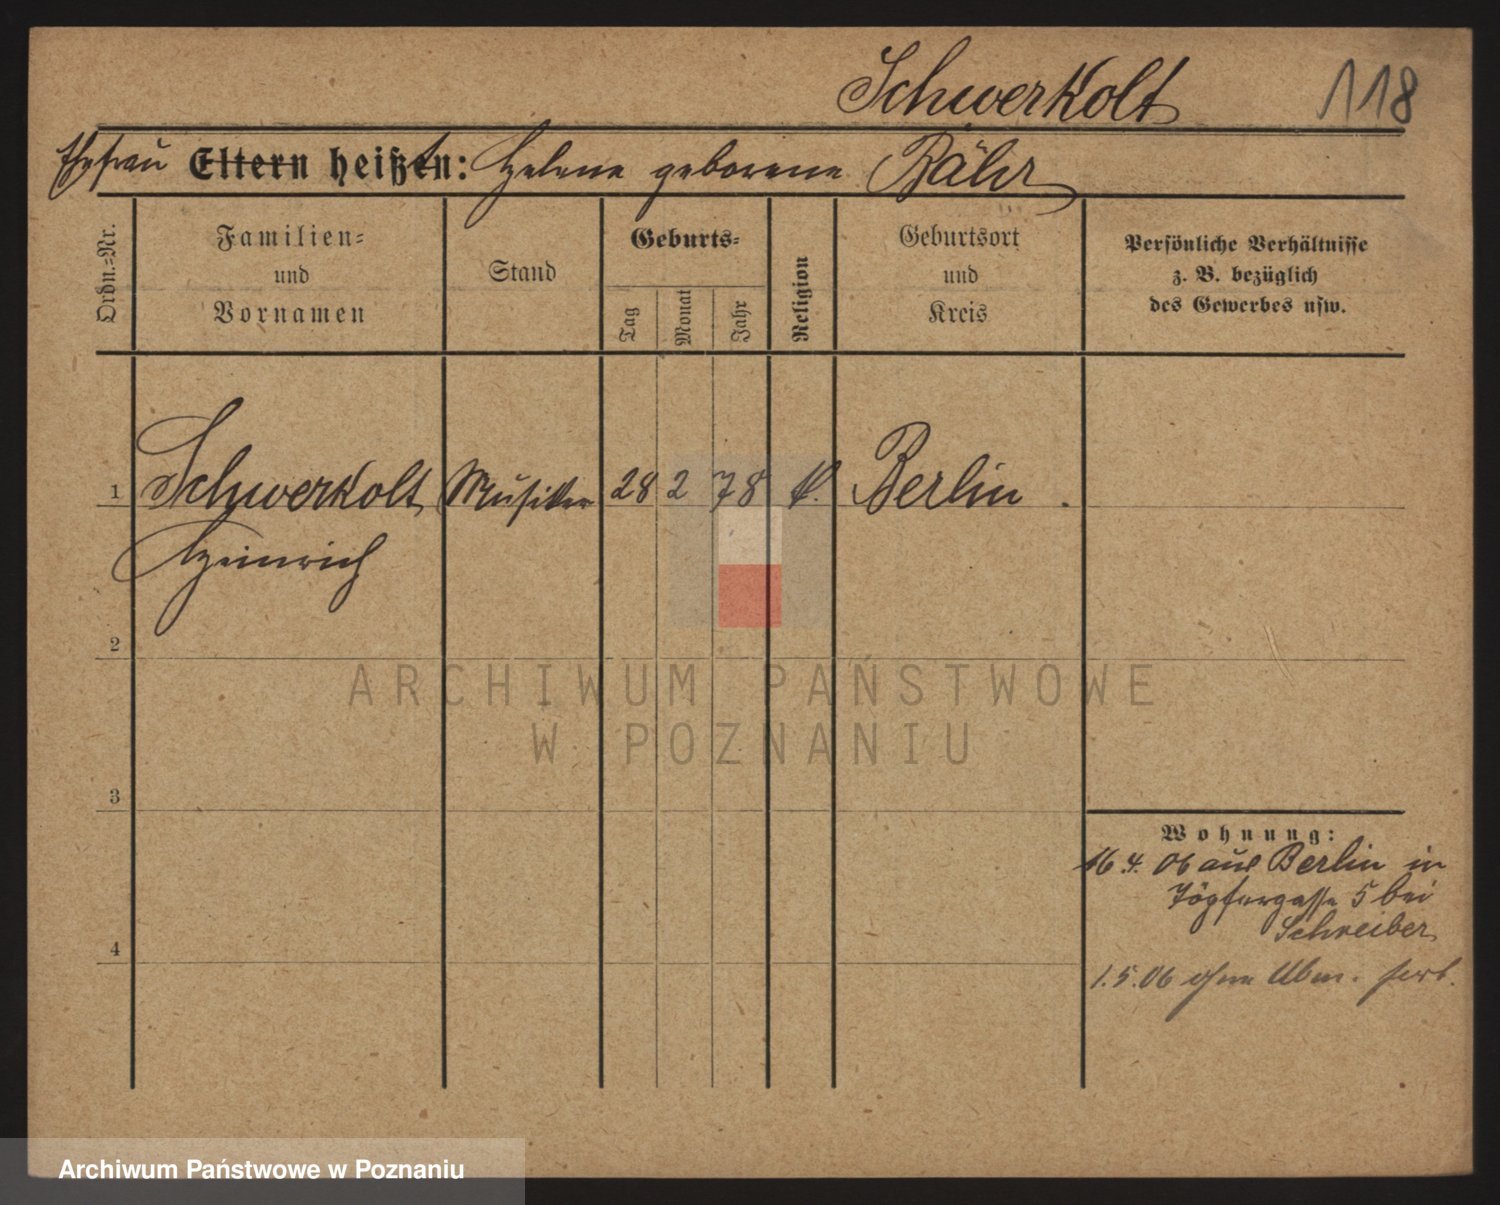 Schwerkolt 118
Ehefrau Eltern heißt: Helene geborene Bähr
Ordn.-Nr.
Familien-
und
Vornamen
Stand
Geburts-
Tag
Monat
Jahr
Religion
Geburtsort
und
Kreis
Persönliche Verhältnisse
z. B. bezüglich
des Gewerbes usw.
1 Schwerkolt Musiker 28 2 78 Berlin.
Heinrich
2
3
4
Wohnung:
16.4.06 aus Berlin in
Töpfergasse 5 bei
Schreiber
1.5.06 ohne Abm.
ARCHIWUM PAŃSTWOWE
W POZNANIU
Archiwum Państwowe w Poznaniu